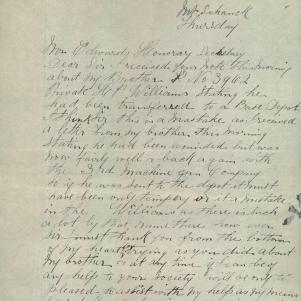 Mt Schanck
Thursday
Wm Edwards Honorary Secretary
Dear Sir I received your note this morning
about my Brother No 3962
Private H.P. Williams stating he
had been transferred to a Base Depot
I think this is a mastake as I received
a letter from my brother this morning
stating he had been wounded but was
now fairly well & back again with
the 23rd Machine Gun Company
so if he was sent to the depot it must
have been only tempory or it a mistake
in the Williams as there is such
a lot by that name there now ever
sir I must thank you from the bottom
of my heart trying as you did about
my brother & at any time I can be of
any help to your Society I will be only to
pleased to assist with my help as my means